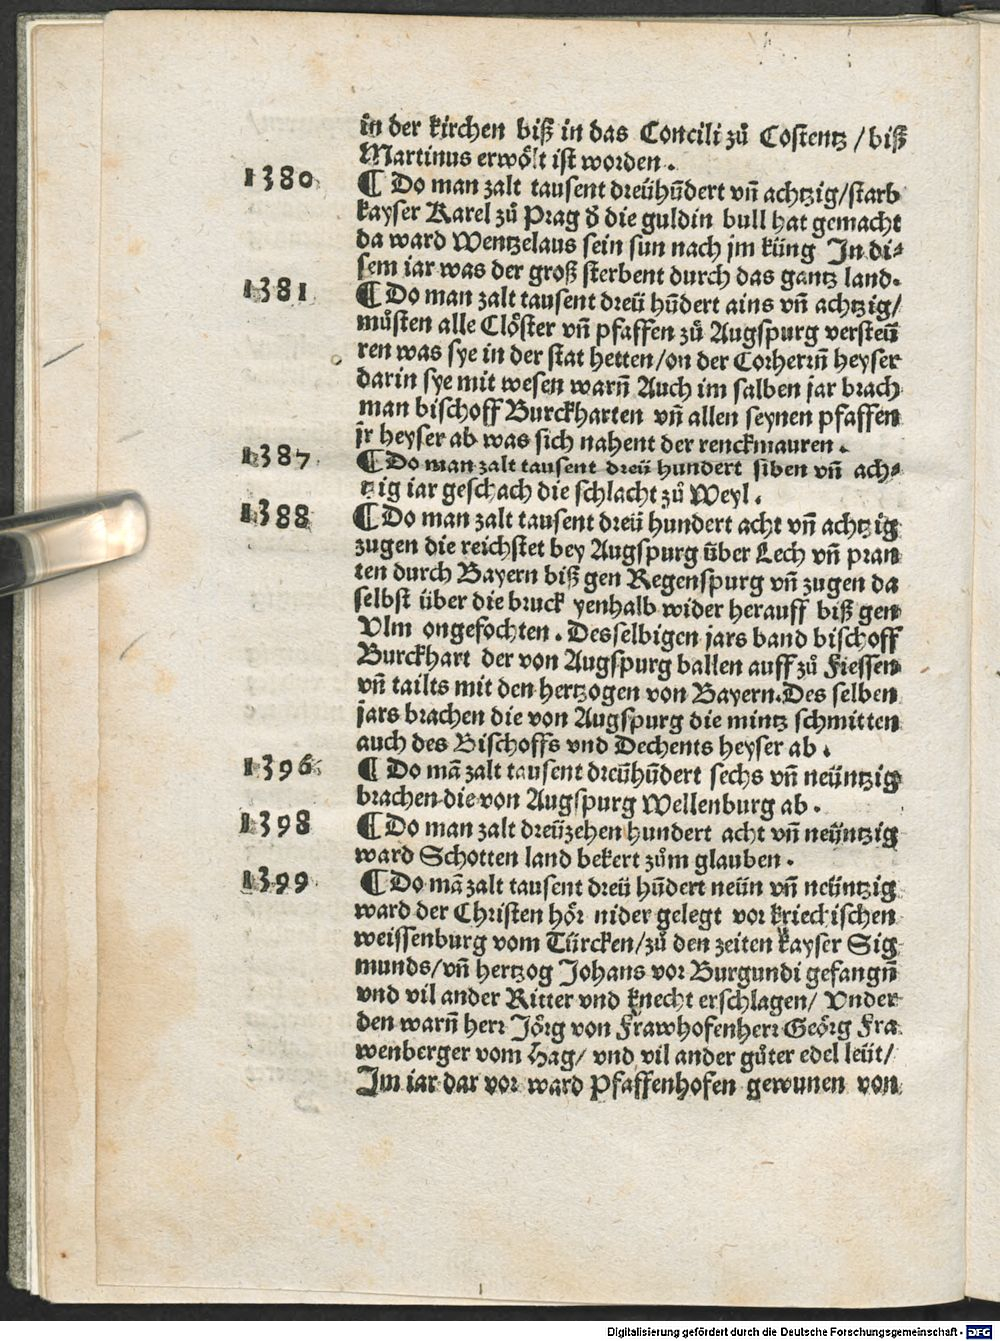 in der kirchen biß in das Concili zů Costentz / biß
Martinus erwoͤlt ist worden .
1380 ¶ Do man zalt tausent dreühũdert vñ achtzig/starb
kayser Karel zů Prag d̕ die guldin bull hat gemacht
da ward Wentzelaus sein sun nach jm küng In di⸗
sem iar was der groß sterbent durch das gantz land.
1381 ¶ Do man zalt tausent dreü hũdert ains vñ achtzig/
můsten alle Cloͤster vñ pfaffen zů Augspurg versteü
ren was sye in der stat hetten/on der Corherrñ heyser
darin sye mit wesen warñ Auch im salben jar brach
man bischoff Burckharten vñ allen seynen pfaffen
jr heyser ab was sich nahent der renckmauren .
1387 ¶ Do man zalt tausent dreü hundert siben vñ ach⸗
tzig iar geschach die schlacht zů Weyl .
1388 ¶ Do man zalt tausent dreü hundert acht vñ achtzig
zugen die reichstet bey Augspurg über Lech vñ pran
ten durch Bayern biß gen Regenspurg vñ zugen da
selbst über die bruck yenhalb wider herauff biß gen
Vlm ongefochten . Desselbigen jars band bischoff
Burckhart der von Augspurg ballen auff zů Fiessen
vñ tailts mit den hertzogen von Bayern.Des selben
jars brachen die von Augspurg die mintz schmitten
auch des Bischoffs vnd Dechents heyser ab .
1396 ¶ Do mã zalt tausent dreühũdert sechs vñ neüntzig
brachen die von Augspurg Wellenburg ab .
1398 ¶ Do man zalt dreüzehen hundert acht vñ neüntzig
ward Schotten land bekert zům glauben .
1399 ¶ Do mã zalt tausent dreü hũdert neün vñ neüntzig
ward der Christen hoͤr nider gelegt vor kriechischen
weissenburg vom Türcken/zů den zeiten kayser Sig
munds/vñ hertzog Johans vor Burgundi gefangñ
vnd vil ander Ritter vnd knecht erschlagen/ Vnder
den warñ herr Joͤrg von Frawhofenherr Geoͤrg Fra
wenberger vom Hag/ vnd vil ander gůter edel leüt/
Im iar dar vor ward Pfaffenhofen gewunen von
Digitalisierung gefördert durch die Deutsche Forschungsgemeinschaft - DFG